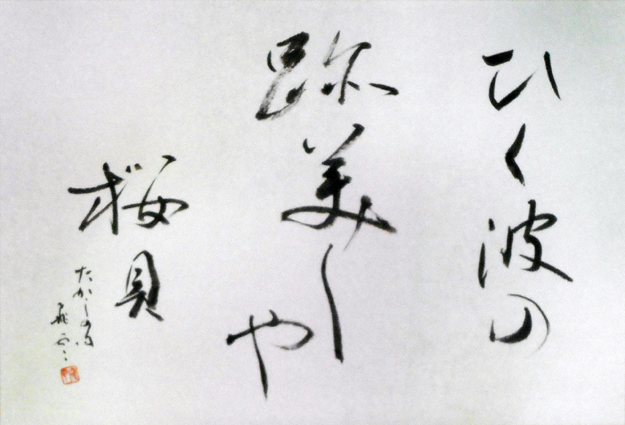 ひく波の
跡美しや
桜貝
たかしの句